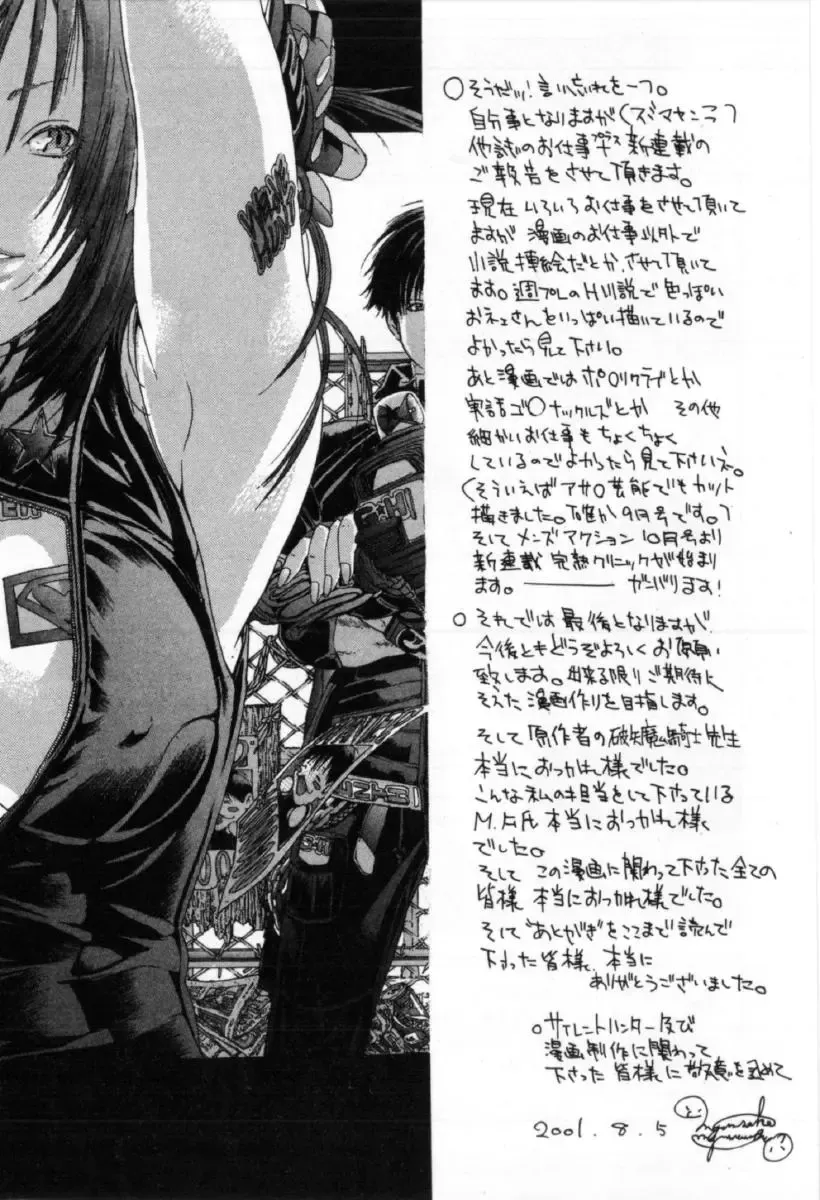 ○そうだッ!言い忘れを一つ。
自分事となりますが(スミマセンこう)
他誌のお仕事プラス新連載の
ご報告をさせて頂きます。
現在いろいろお仕事をさせて頂いて
ますが 漫画のお仕事以外で
小説挿絵だとか、させて頂いて
ます。週プレのH小説で色っぽい
おネェさんをいっぱい描いているので
よかったら見て下さい。
あと漫画ではポ○リクラブとか
実話ゴ○ナックルズとか その他
細かいお仕事もちょくちょく
しているのでよかったら見て下さいネ。
(そういえばアサ○芸能でもカット
描きました。確か9月号です。)
そして メンズアクション 10月号より
新連載 完熟クリニックが始まり
ます。――― ガンバリます!
○それでは最後となりますが
今後ともどうぞよろしくお願い
致します。出来る限りご期待に
そえた漫画作りを目指します。
そして原作者の破矢魔騎士先生
本当におつかれ様でした。
こんな私の担当をして下さっている
本当におつかれ様
でした。
そして この漫画に関わって下さった全ての
皆様 本当におつかれ様でした。
そして"あとがき"をここまで読んで
下さった皆様、本当に
ありがとうございました。
○サイレントハンター及び
漫画制作に関わって
下さった皆様に敬意を込めて
2001. 8. 5